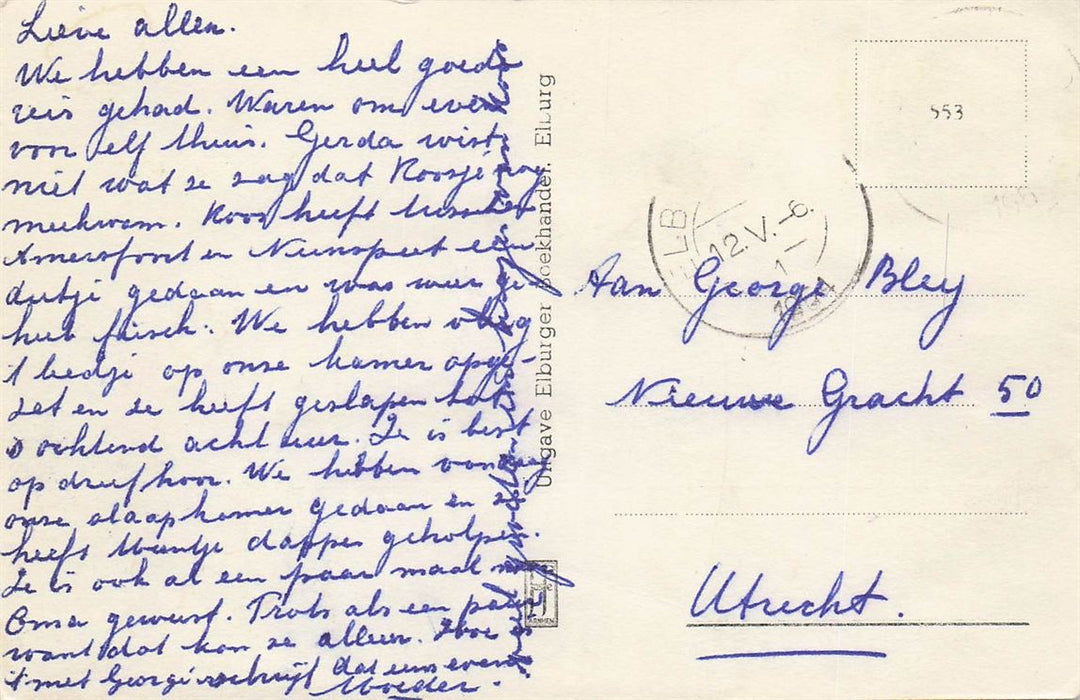 Lieve allen.
We hebben een heel goede
reis gehad. Waren om even
voor elf thuis. Gerda wist
niet wat ze zag dat Roosje nog
meekwam. Roos heeft tussen
Amersfoort en Nunspeet een
dutje gedaan en was weer ge-
heel frisch. We hebben
't bedje op onze kamer opge-
zet en ze heeft geslapen tot
s ochtend acht uur. Ze is best
op dreef hoor. We hebben vandaag
onze slaapkamer gedaan en ze
heeft Muntje dapper geholpen.
Ze is ook al een paar maal naar
Oma geweest. Trots als een pauw
want dat kan ze alleen. Hoe is
't met Georgie schrijf dat eens even
Moeder.
Uitgave Elburger Boekhandel. Elburg
ARNHEM
553
ELB
12.V.-6.
1
Aan George Bley
Nieuwe Gracht 50
Utrecht.